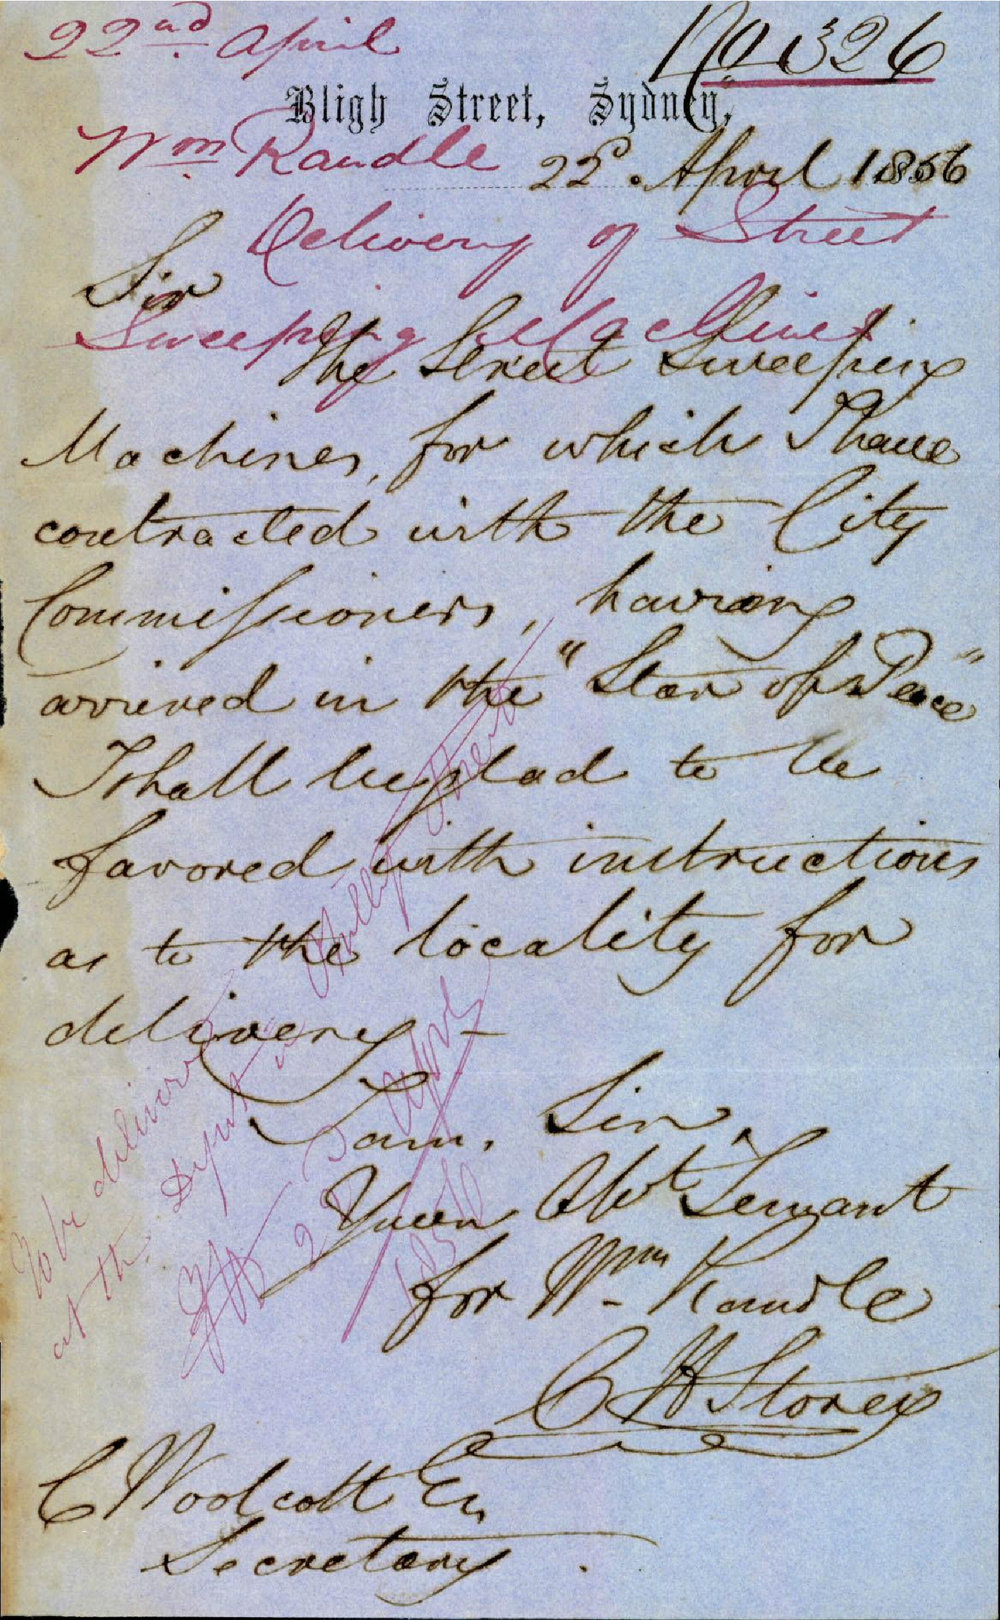 22nd April
No 326
Bligh Street, Sydney,
Wm Randle
22d. April 1856
Delivery of Street
Sweeping Machines
Sir
The Street Sweeping
Machines, for which I have
contracted with the City
Commissioners, having
arrived in the "Star of Peace"
I shall be glad to be
favored with instructions
as to the locality for
delivery -
I am, Sir,
Your Obt Servant
for Wm Randle
C H Storey
C Woolcott Esq
Secretary.
To be delivered
at the Depot in
Phillip Street
April
185